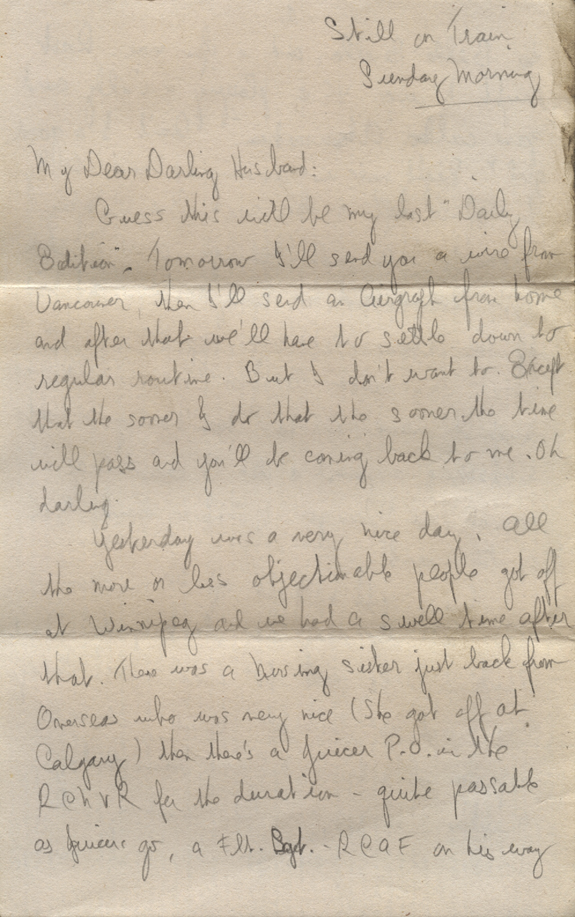 Still on Train
Sunday Morning
My Dear Darling Husband:
Guess this will be my last "Daily
Edition". Tomorrow I'll send you a wire from
Vancouver, then I'll send an Airgraph from home
and after that we'll have to settle down to
regular routine. But I don't want to. Except
that the sooner I do that the sooner the time
will pass and you'll be coming back to me. Oh
darling.
Yesterday was a very nice day. All
the more or less objectionable people got off
at Winnipeg and we had a swell time after
that. There was a Nursing sister just back from
Overseas who was very nice (She got off at
Calgary) then there's a P.O. in the
RCNVR for the duration - quite passable
as go, a Flt. Sgt. - RCAF on his way